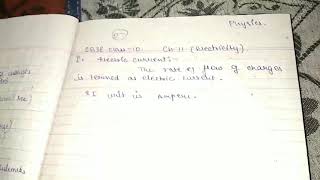 Physics.
CBSE Class-10 Ch-11 (Electricity)
1. Electric current:-
The rate of flow of charges
is termed as electric current.
SI unit is Ampere.